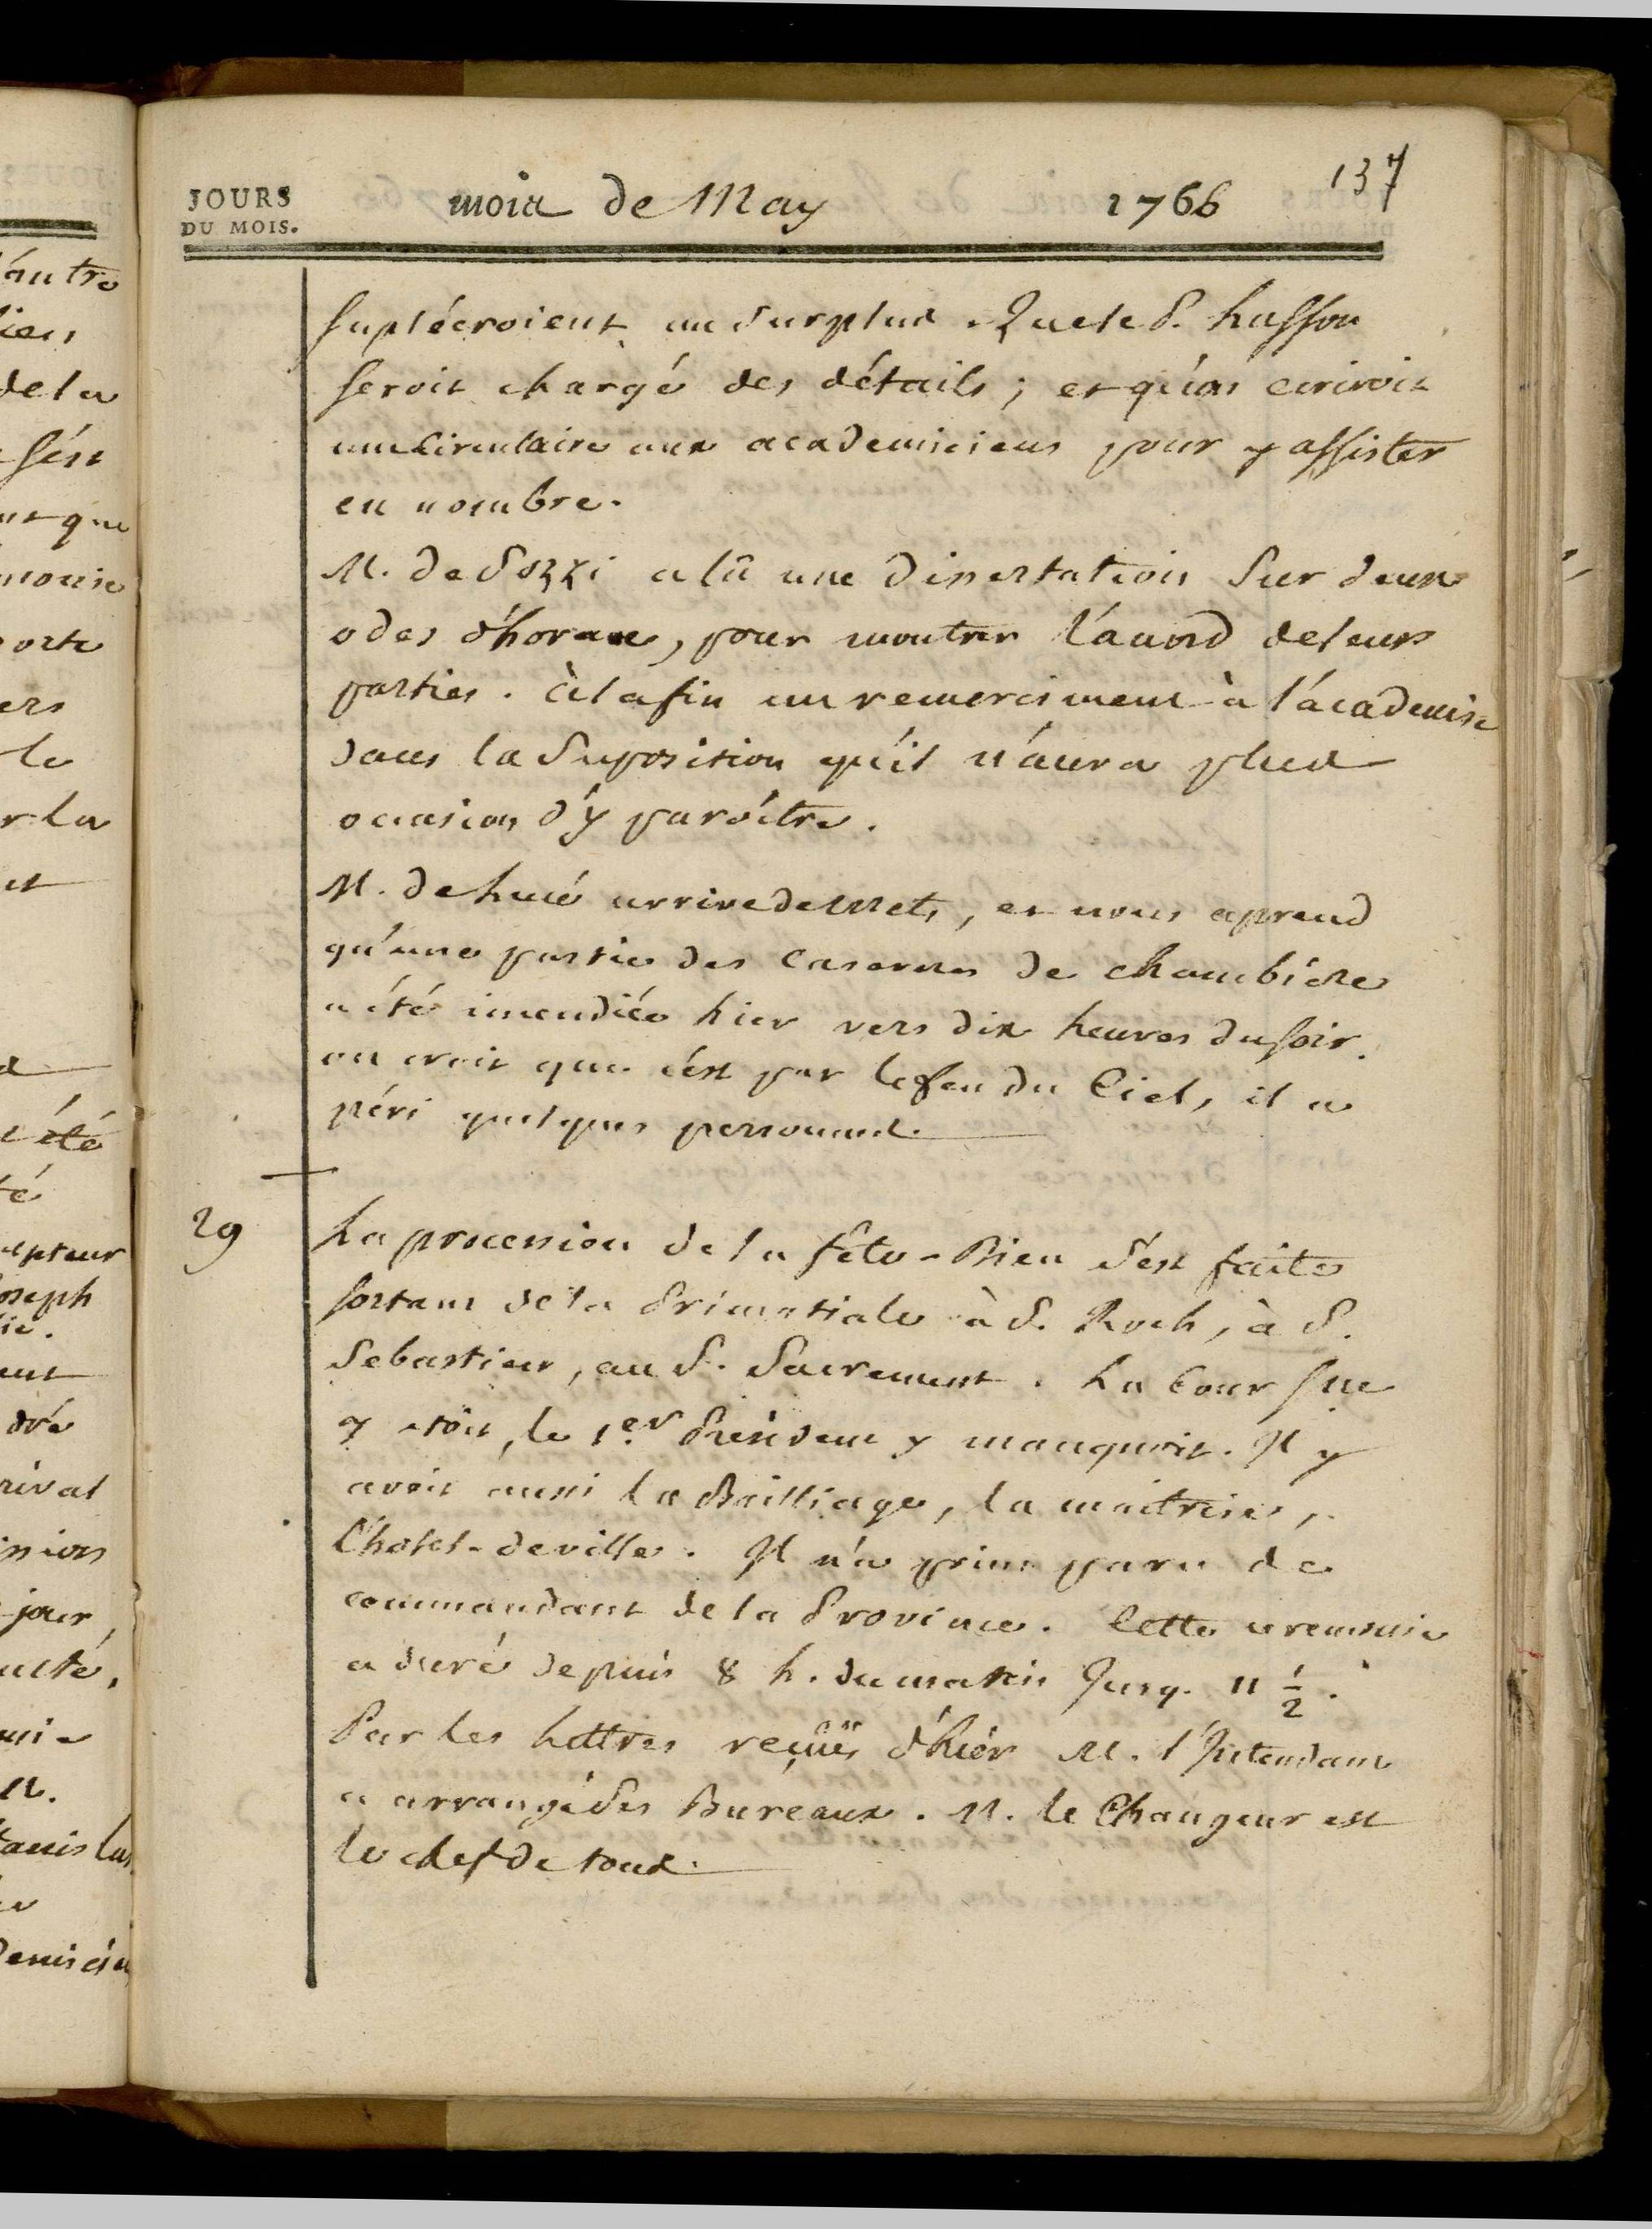 137
JOURS
DU MOIS.
mois de May 1766
supléeroient au Surplus. Que le S. husson
seroit chargé des détails ; et qu'on ecriroit
une Circulaire aux academiciens pour y assister
en nombre.
M. de Sozzi a lû une Dissertation Sur deux
odes d'horace, pour montrer l'acord de leurs
parties. à la fin un remerciment à l'academie
dans la Suposition qu'il n'aura plus
occasion d'y paroître.
M. de hué arrive de Metz, et nous aprend
qu'une partie des Casernes de chambiére
a été incendiée hier vers dix heures du soir.
on croit que c'est par le feu du Ciel, il a
péri quelques personnes.
29
La procession de la fête-Dieu s'est faite
sortant de la Primatiale à S. Roch, à S.
Sebastien, au S. Sacrement. La Cour Sne
y étoit, le 1.er Président y manquoit. Il y
avoit aussi le Bailliage, la maitrise,
l'hotel-de ville. Il n'a point paru de
commandant de la Province. Cette ceremonie
a duré depuis 8 h. du matin Jusq. 11 1/2.
Par les Lettres reçuës d'hier M. l'Intendant
a arrangé Ses Bureaux. M. le Changeur est
le chef de tous.
l'autre
de la
été
Joseph
jour,